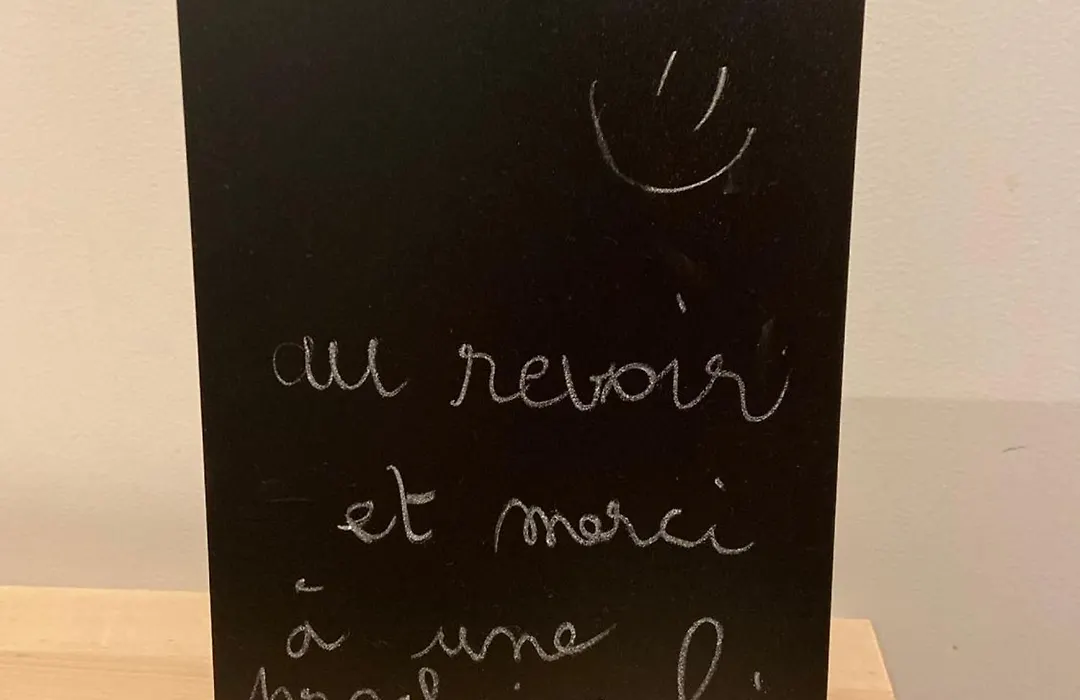 au revoir
et merci
à une